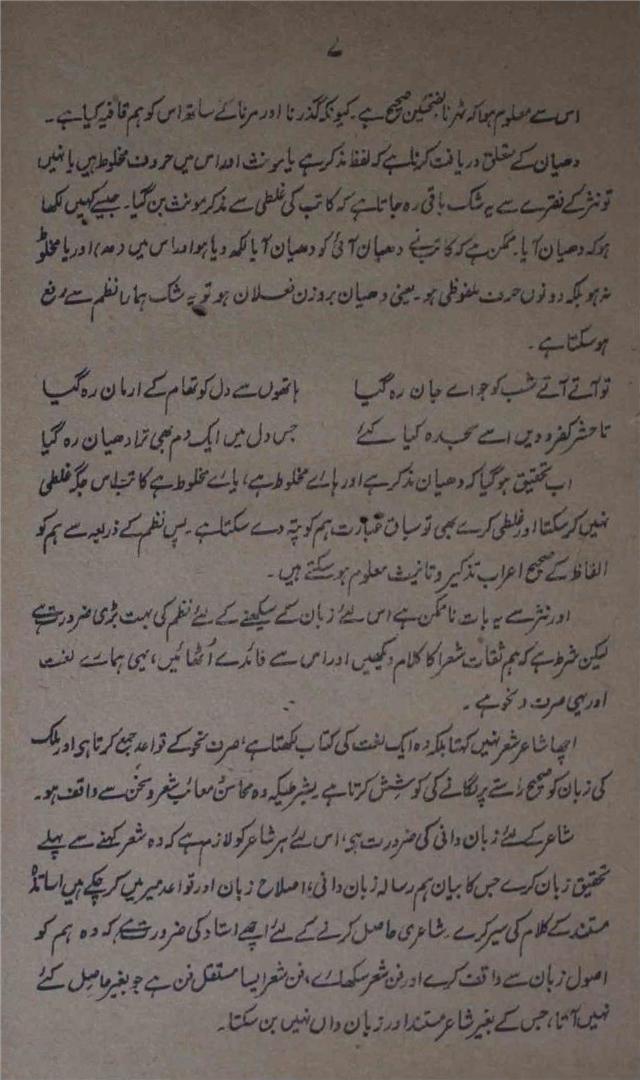 ۷
اس سے معلوم ہوا کہ ٹہرنا بفتحتین صحیح ہے۔ کیونکہ گذرنا اور مرنا کے ساتھ اس کو ہم قافیہ کیا ہے۔
دھیان کے متعلق دریافت کرنا ہے کہ لفظ مذکر ہے یا مونث اور اس میں حروف مخلوط ہیں یا نہیں
تو نثر کے فقرے سے یہ شک باقی رہ جاتا ہے کہ کاتب کی غلطی سے مذکر مونث بن گیا۔ جیسے کہیں لکھا
ہو کہ دھیان آیا۔ ممکن ہے کہ کاتب نے دھیان آئی کو دھیان آیا لکھ دیا ہو اور اس میں (دھ) اور یا مخلوط
نہ ہو بلکہ دونوں حرف ملفوظی ہو۔ یعنی دھیان بروزن فعلان ہو تو یہ شک ہمارا نظم سے رفع
ہو سکتا ہے۔
تو آتے آتے شب کو جو اے جان رہ گیا ہاتھوں سے دل کو تھام کے ارمان رہ گیا
تا حشر کفر و دیں اسے سجدہ کیا کئے جس دل میں ایک دم بھی ترا دھیان رہ گیا
اب تحقیق ہو گیا کہ دھیان مذکر ہے اور ہائے مخلوط ہے، یائے مخلوط ہے کاتب اس جگہ غلطی
نہیں کر سکتا اور غلطی کرے بھی تو سیاق عبارت ہم کو پتہ دے سکتا ہے۔ پس نظم کے ذریعہ سے ہم کو
الفاظ کے صحیح اعراب تذکیر و تانیث معلوم ہو سکتے ہیں۔
اور نثر سے یہ بات ناممکن ہے اس لئے زبان کے سیکھنے کے لئے نظم کی بہت بڑی ضرورت ہے
لیکن شرط ہے کہ ہم ثقات شعرا کا کلام دیکھیں اور اس سے فائدے اُٹھائیں، یہی ہمارے لغت
اور یہی صرف و نحو ہے۔
اچھا شاعر شعر نہیں کہتا بلکہ وہ ایک لغت کی کتاب لکھتا ہے، صرف نحو کے قواعد جمع کرتا ہی اور ملک
کی زبان کو صحیح راستے پر لگانے کی کوشش کرتا ہے بشرطیکہ وہ محاسن و معائب شعر و سخن سے واقف ہو۔
شاعر کے لئے زبان دانی کی ضرورت ہی، اس لئے ہر شاعر کو لازم ہے کہ وہ شعر کہنے سے پہلے
تحقیق زبان کرے جس کا بیان ہم رسالہ زبان دانی، اصلاح زبان اور قواعد میر میں کر چکے ہیں اساتذہ
مستند کے کلام کی سیر کرے۔ شاعری حاصل کرنے کے لئے اچھے استاد کی ضرورت ہے کہ وہ ہم کو
اصول زبان سے واقف کرے اور فن شعر سکھائے، فن شعر ایسا مستقل فن ہے جو بغیر حاصل کئے
نہیں آتا، جس کے بغیر شاعر مستند اور زبان داں نہیں بن سکتا۔